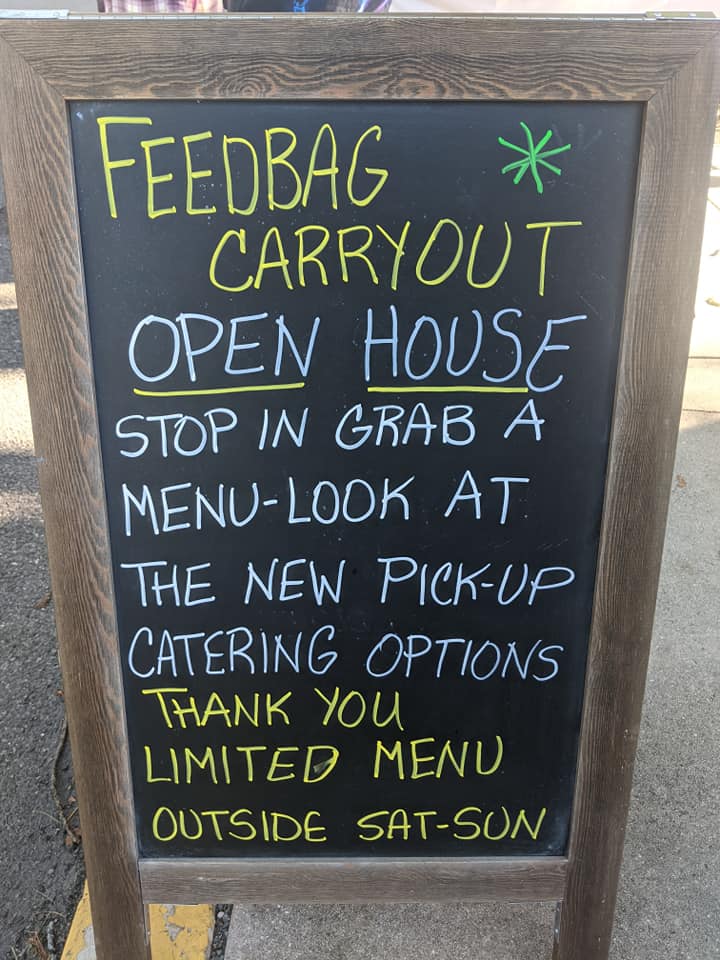 FEEDBAG
CARRYOUT
OPEN HOUSE
STOP IN GRAB A
MENU-LOOK AT
THE NEW PICK-UP
CATERING OPTIONS
THANK YOU
LIMITED MENU
OUTSIDE SAT-SUN